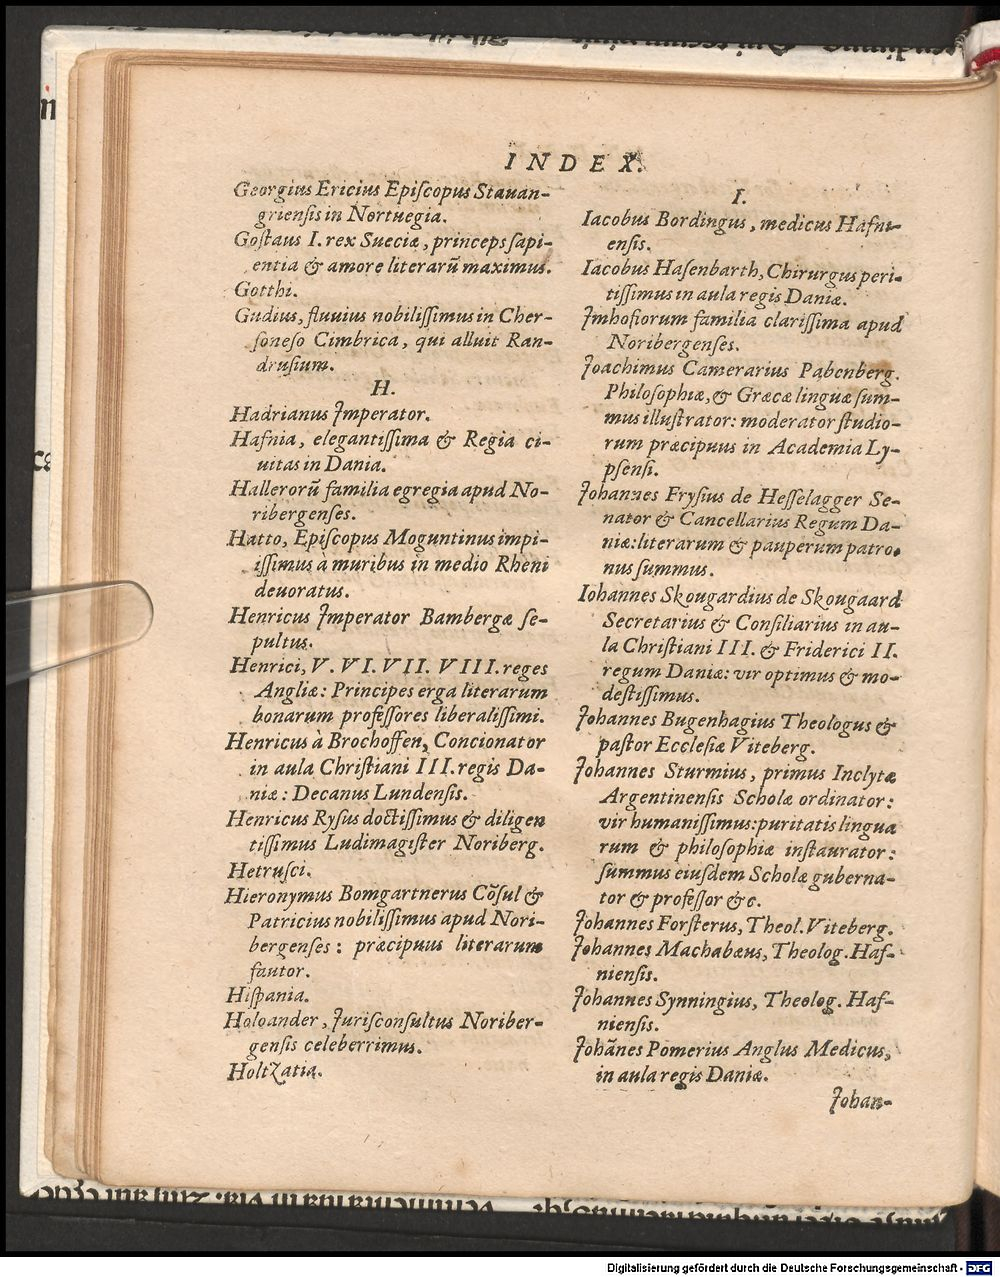 INDEX.
Georgius Ericius Epiſcopus Stauan-
grienſis in Nortuegia.
Goſtaus I. rex Sueciæ, princeps ſapi-
entia & amore literarũ maximus.
Gotthi.
Gudius, fluuius nobiliſſimus in Cher-
ſoneſo Cimbrica, qui alluit Ran-
druſium.
H.
Hadrianus Imperator.
Hafnia, elegantiſſima & Regia ci-
uitas in Dania.
Hallerorũ familia egregia apud No-
ribergenſes.
Hatto, Epiſcopus Moguntinus impi-
iſſimus a muribus in medio Rheni
deuoratus.
Henricus Imperator Bambergæ ſe-
pultus.
Henrici, V. VI. VII. VIII. reges
Angliæ: Principes erga literarum
bonarum profeſſores liberaliſſimi.
Henricus à Brochoffen, Concionator
in aula Chriſtiani III. regis Da-
niæ: Decanus Lundenſis.
Henricus Ryſus doctiſſimus & diligen
tiſſimus Ludimagiſter Noriberg.
Hetruſci.
Hieronymus Bomgartnerus Cõſul &
Patricius nobiliſſimus apud Nori-
bergenſes: præcipuus literarum
fautor.
Hiſpania.
Holoander, Juriſconſultus Noriber-
genſis celeberrimus.
Holtzatia.
I.
Iacobus Bordingus, medicus Hafni-
enſis.
Iacobus Haſenbarth, Chirurgus peri-
tiſſimus in aula regis Daniæ.
Imhofiorum familia clariſſima apud
Noribergenſes.
Joachimus Camerarius Pabenberg.
Philoſophiæ, & Græcæ linguæ ſum-
mus illuſtrator: moderator ſtudio-
rum præcipuus in Academia Ly-
pſenſi.
Johannes Fryſius de Heſſelagger Se-
nator & Cancellarius Regum Da-
niæ: literarum & pauperum patro-
nus ſummus.
Iohannes Skougardius de Skougaard
Secretarius & Conſiliarius in au-
la Chriſtiani III. & Friderici II.
regum Daniæ: vir optimus & mo-
deſtiſſimus.
Johannes Bugenhagius Theologus &
paſtor Eccleſiæ Viteberg.
Johannes Sturmius, primus Inclytæ
Argentinenſis Scholæ ordinator:
vir humaniſſimus: puritatis lingua
rum & philoſophiæ inſtaurator:
ſummus eiuſdem Scholæ guberna-
tor & profeſſor &c.
Johannes Forſterus, Theol. Viteberg.
Johannes Machabæus, Theolog. Haf-
nienſis.
Johannes Synningius, Theolog. Haf-
nienſis.
Johãnes Pomerius Anglus Medicus,
in aula regis Daniæ.
Johan-
Digitalisierung gefördert durch die Deutsche Forschungsgemeinschaft - DFG